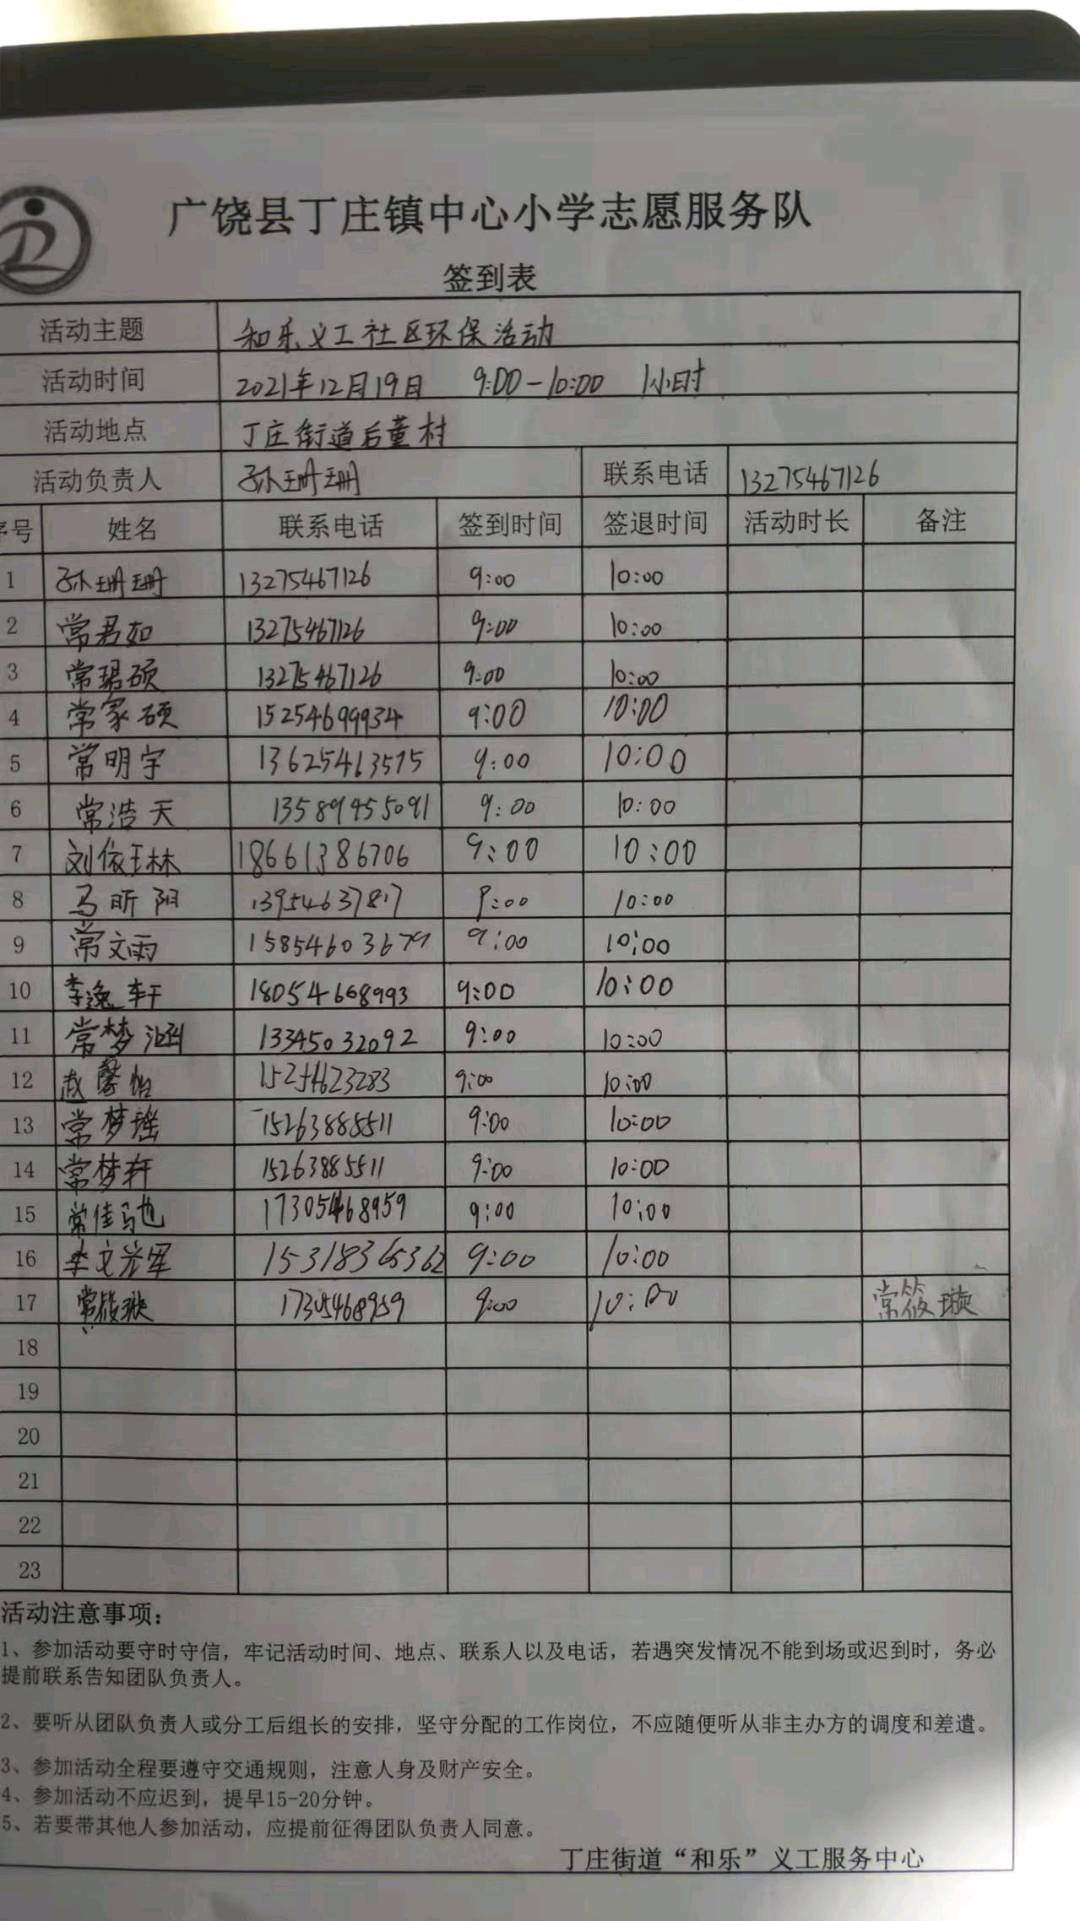 广饶县丁庄镇中心小学志愿服务队
签到表
活动主题 和乐义工社区环保活动
活动时间 2021年12月19日 9:00-10:00 1小时
活动地点 丁庄街道后董村
活动负责人 孙珊珊 联系电话 13275467126
序号 姓名 联系电话 签到时间 签退时间 活动时长 备注
1 孙珊珊 13275467126 9:00 10:00
2 常君如 13275467126 9:00 10:00
3 常珺硕 13275467126 9:00 10:00
4 常家硕 15254699934 9:00 10:00
5 常明宇 13625463575 9:00 10:00
6 常浩天 13589455091 9:00 10:00
7 刘依琳 18661386706 9:00 10:00
8 马昕阳 13954637817 9:00 10:00
9 常文雨 15854603679 9:00 10:00
10 李逸轩 18054668993 9:00 10:00
11 常梦涵 13345032092 9:00 10:00
12 赵馨怡 15254623283 9:00 10:00
13 常梦瑶 15263885511 9:00 10:00
14 常梦轩 15263885511 9:00 10:00
15 常佳驰 17305468959 9:00 10:00
16 李文军 15318365362 9:00 10:00
17 常筱璇 17305468959 9:00 10:00 常筱璇
18
19
20
21
22
23
活动注意事项：
1、参加活动要守时守信，牢记活动时间、地点、联系人以及电话，若遇突发情况不能到场或迟到时，务必
提前联系告知团队负责人。
2、要听从团队负责人或分工后组长的安排，坚守分配的工作岗位，不应随便听从非主办方的调度和差遣。
3、参加活动全程要遵守交通规则，注意人身及财产安全。
4、参加活动不应迟到，提早15-20分钟。
5、若要带其他人参加活动，应提前征得团队负责人同意。
丁庄街道“和乐”义工服务中心